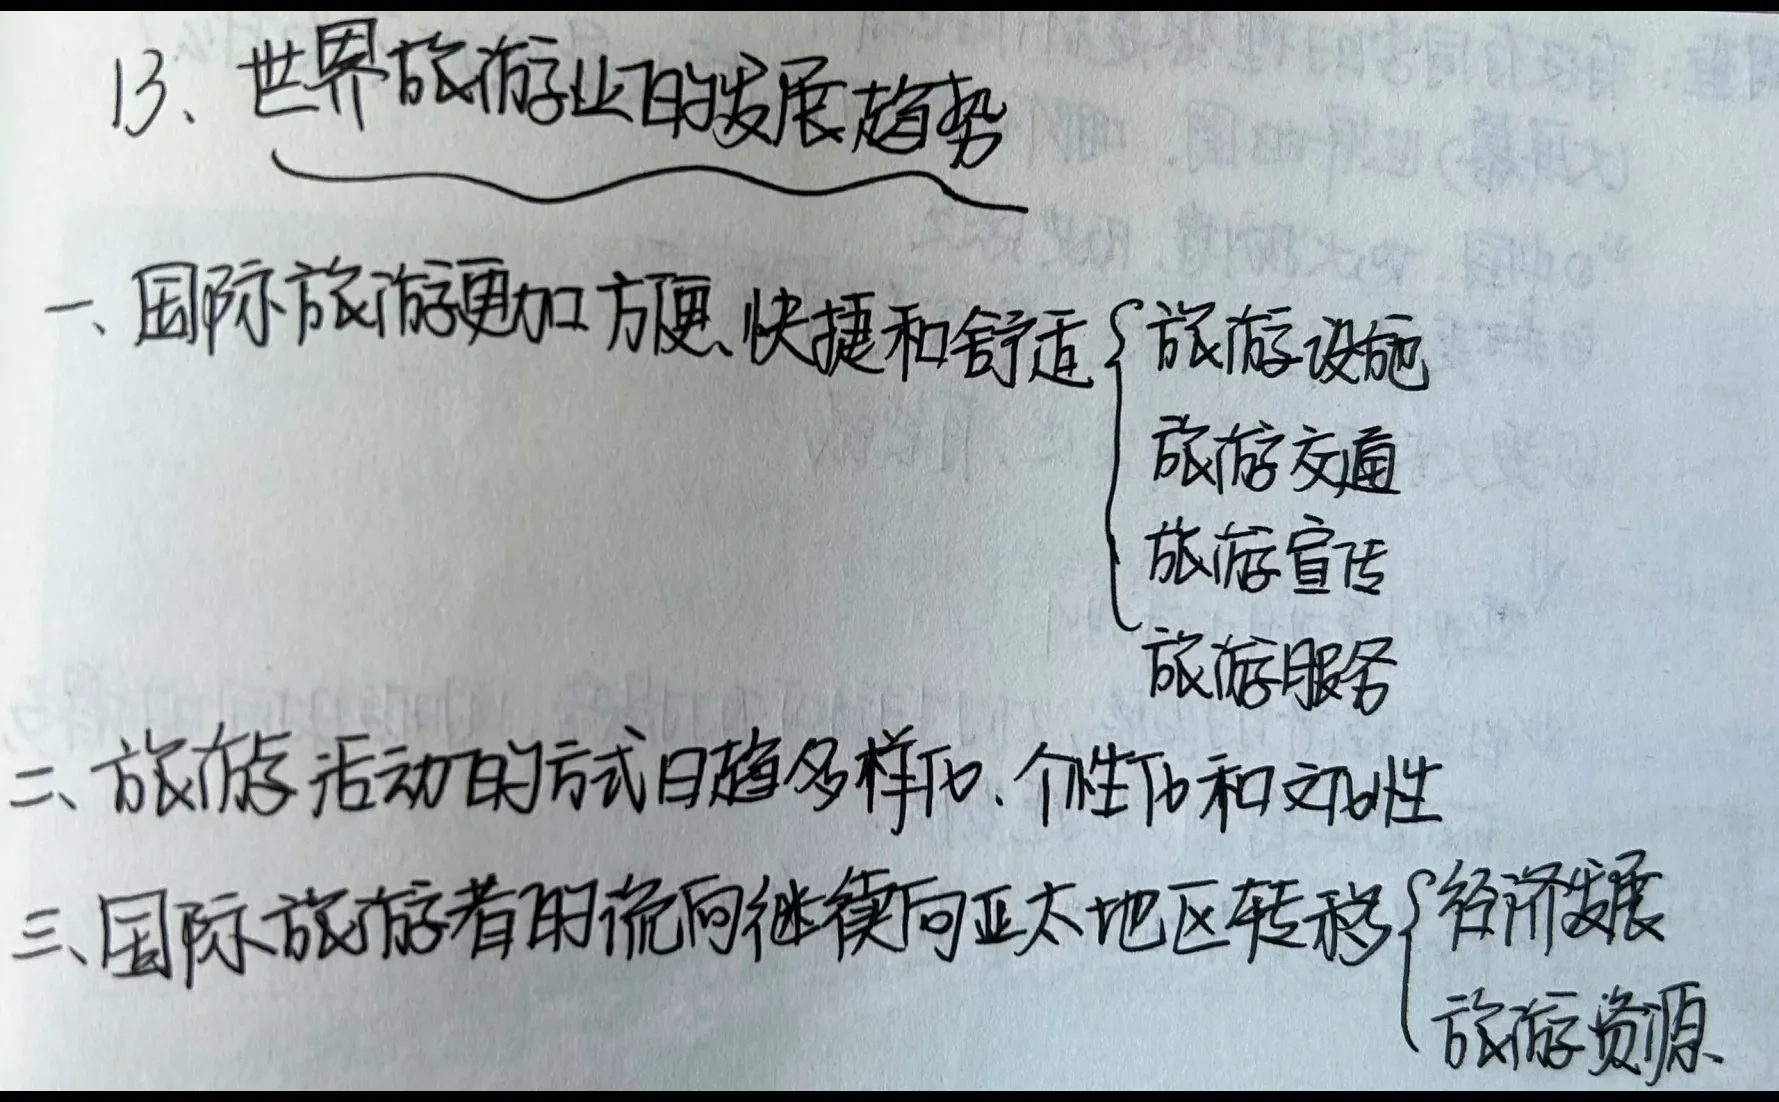 13、世界旅游业的发展趋势
一、国际旅游更加方便、快捷和舒适{旅游设施
旅游交通
旅游宣传
旅游服务
二、旅游活动的方式日趋多样化、个性化和文化性
三、国际旅游者的流向继续向亚太地区转移{经济发展
旅游资源